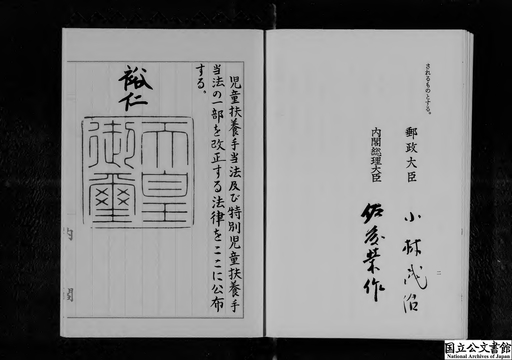 されるものとする。
郵政大臣　小林武治
内閣総理大臣　佐藤榮作
二
児童扶養手当法及び特別児童扶養手
当法の一部を改正する法律をここに公布
する。
裕仁
天皇
御璽
国立公文書館
National Archives of Japan